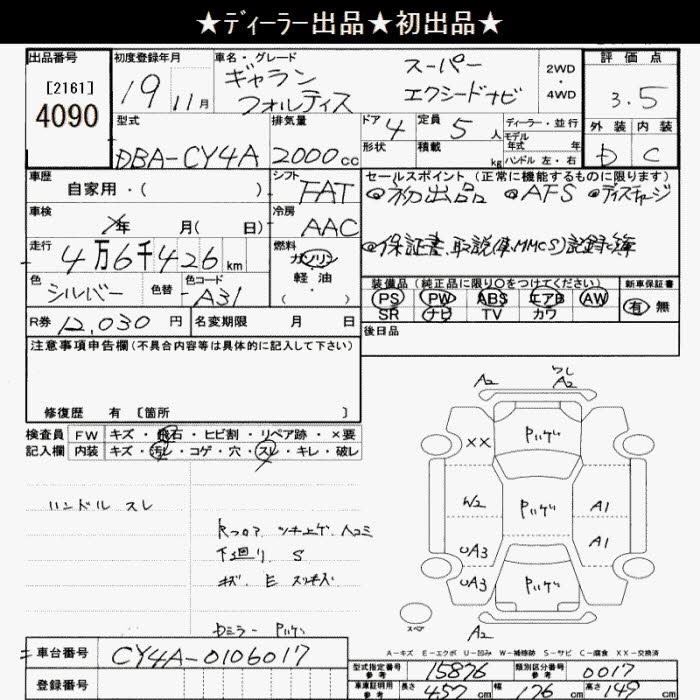 ★ディーラー出品★初出品★
出品番号
[2161]
4090
初度登録年月
19 11月
車名・グレード
ギャラン
フォルティス
スーパー
エクシードナビ
2WD
・
4WD
評価点
3.5
外装 内装
D C
型式
DBA-CY4A
排気量
2000cc
ドア 4
形状
定員 5 人
積載 kg
ディーラー・並行
モデル
年式 年
ハンドル 左・右
車歴
自家用・( )
シフト
FAT
セールスポイント(正常に機能するものに限ります)
◎初出品 ◎AFS ◎ディスチャージ
◎保証書、取説(車、MMCS)記録簿
車検
年 月( 日)
冷房
AAC
走行
4万6千426km
燃料
ガソリン
軽油
色
シルバー
色替
色コード
A31
装備品(純正品に限り○をつけてください)
PS PW ABS エアB AW
SR ナビ TV カワ
新車保証書
有 無
R券 12,030 円
名変期限 月 日
後日品
注意事項申告欄(不具合内容等は具体的に記入して下さい)
修復歴 有 〔箇所 〕
検査員
記入欄
FW キズ・飛石・ヒビ割・リペア跡・×要
内装 キズ・汚レ・コゲ・穴・スレ・キレ・破レ
ハンドル スレ
下廻り S
キズ E
ミラー
A2
A2
XX
W2
A1
UA3
A1
UA3
A2
スペア
A-キズ E-エクボ U-凹み W-補修跡 S-サビ C-腐食 XX-交換済
車台番号 CY4A-0106017
登録番号
型式指定番号
参考
15876
類別区分番号
参考
0017
車庫証明用
参考
長さ 457 cm 幅 176 cm 高さ 149 cm